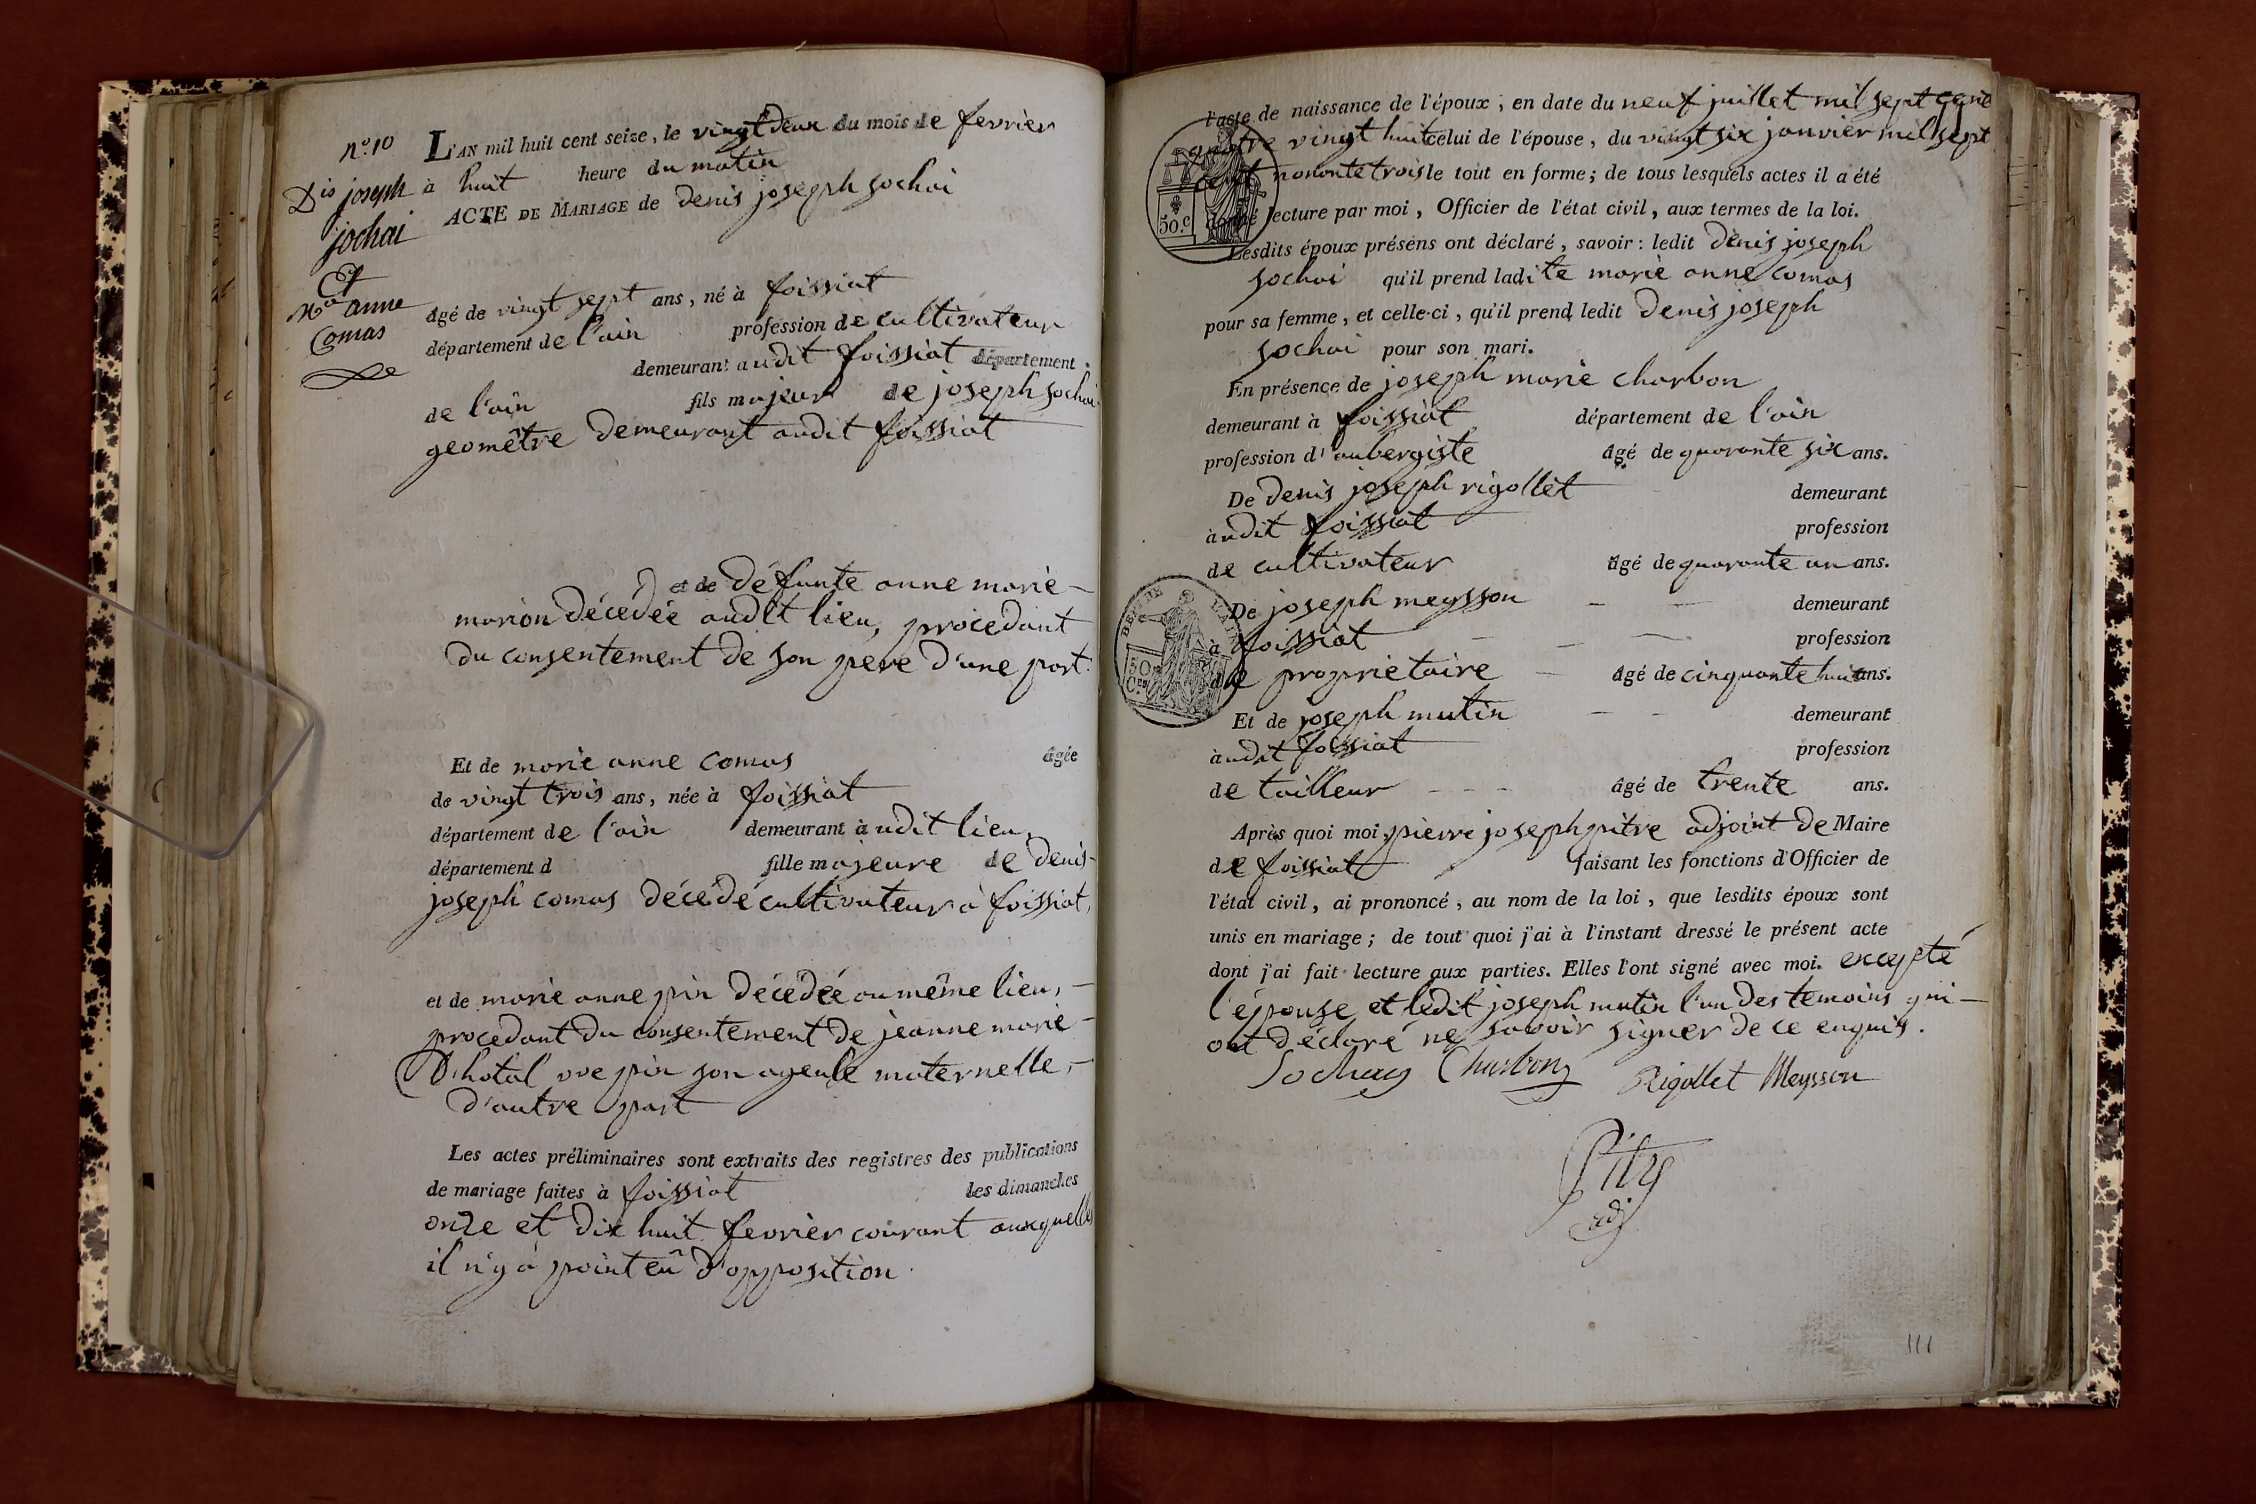 n.º 10
Dis joseph
jochai
Et
Mie anne
Comas
L'AN mil huit cent seize, le vingt deux du mois de fevrier
à huit heure du matin
ACTE DE MARIAGE de denis joseph sochai
âgé de vingt sept ans, né à foissiat
département de l'ain profession de cultivateur
demeurant audit foissiat département
de l'ain fils majeur de joseph sochai
geomêtre demeurant audit foissiat
et de défunte anne marie
marion décedée audit lieu, procedant
du consentement de son pere d'une part.
Et de marie anne comas âgée
de vingt trois ans, née à foissiat
département de l'ain demeurant audit lieu
département d fille majeure de denis
joseph comas décédé cultivateur à foissiat,
et de marie anne pin décédée au même lieu,
procedant du consentement de jeanne marie
D'hotal vve pin son ayeule maternelle,
d'autre part
Les actes préliminaires sont extraits des registres des publications
de mariage faites à foissiat les dimanches
onze et dix huit fevrier courant auxquelles
il n'y a point eû d'opposition
l'acte de naissance de l'époux, en date du neuf juillet mil sept cent
quatre vingt huit celui de l'épouse, du vingt six janvier mil sept
cent nonante trois le tout en forme; de tous lesquels actes il a été
donné lecture par moi, Officier de l'état civil, aux termes de la loi.
Lesdits époux présens ont déclaré, savoir: ledit denis joseph
sochai qu'il prend ladite marie anne comas
pour sa femme, et celle-ci, qu'il prend ledit denis joseph
sochai pour son mari.
En présence de joseph marie charbon
demeurant à foissiat département de l'ain
profession d'aubergiste âgé de quarante six ans.
De denis joseph rigollet demeurant
audit foissiat profession
de cultivateur âgé de quarante un ans.
De joseph meysson demeurant
à foissiat profession
de proprietaire âgé de cinquante huit ans.
Et de joseph mutin demeurant
audit foissiat profession
de tailleur âgé de trente ans.
Après quoi moi, pierre joseph pitre adjoint de Maire
de foissiat faisant les fonctions d'Officier de
l'état civil, ai prononcé, au nom de la loi, que lesdits époux sont
unis en mariage; de tout quoi j'ai à l'instant dressé le présent acte
dont j'ai fait lecture aux parties. Elles l'ont signé avec moi. excepté
l'épouse et ledit joseph mutin l'un des temoins qui
ont déclaré ne savoir signer de ce enquis.
Sochay Charbon Rigollet Meysson
Pitre
adj
50.c
50
Ces
111